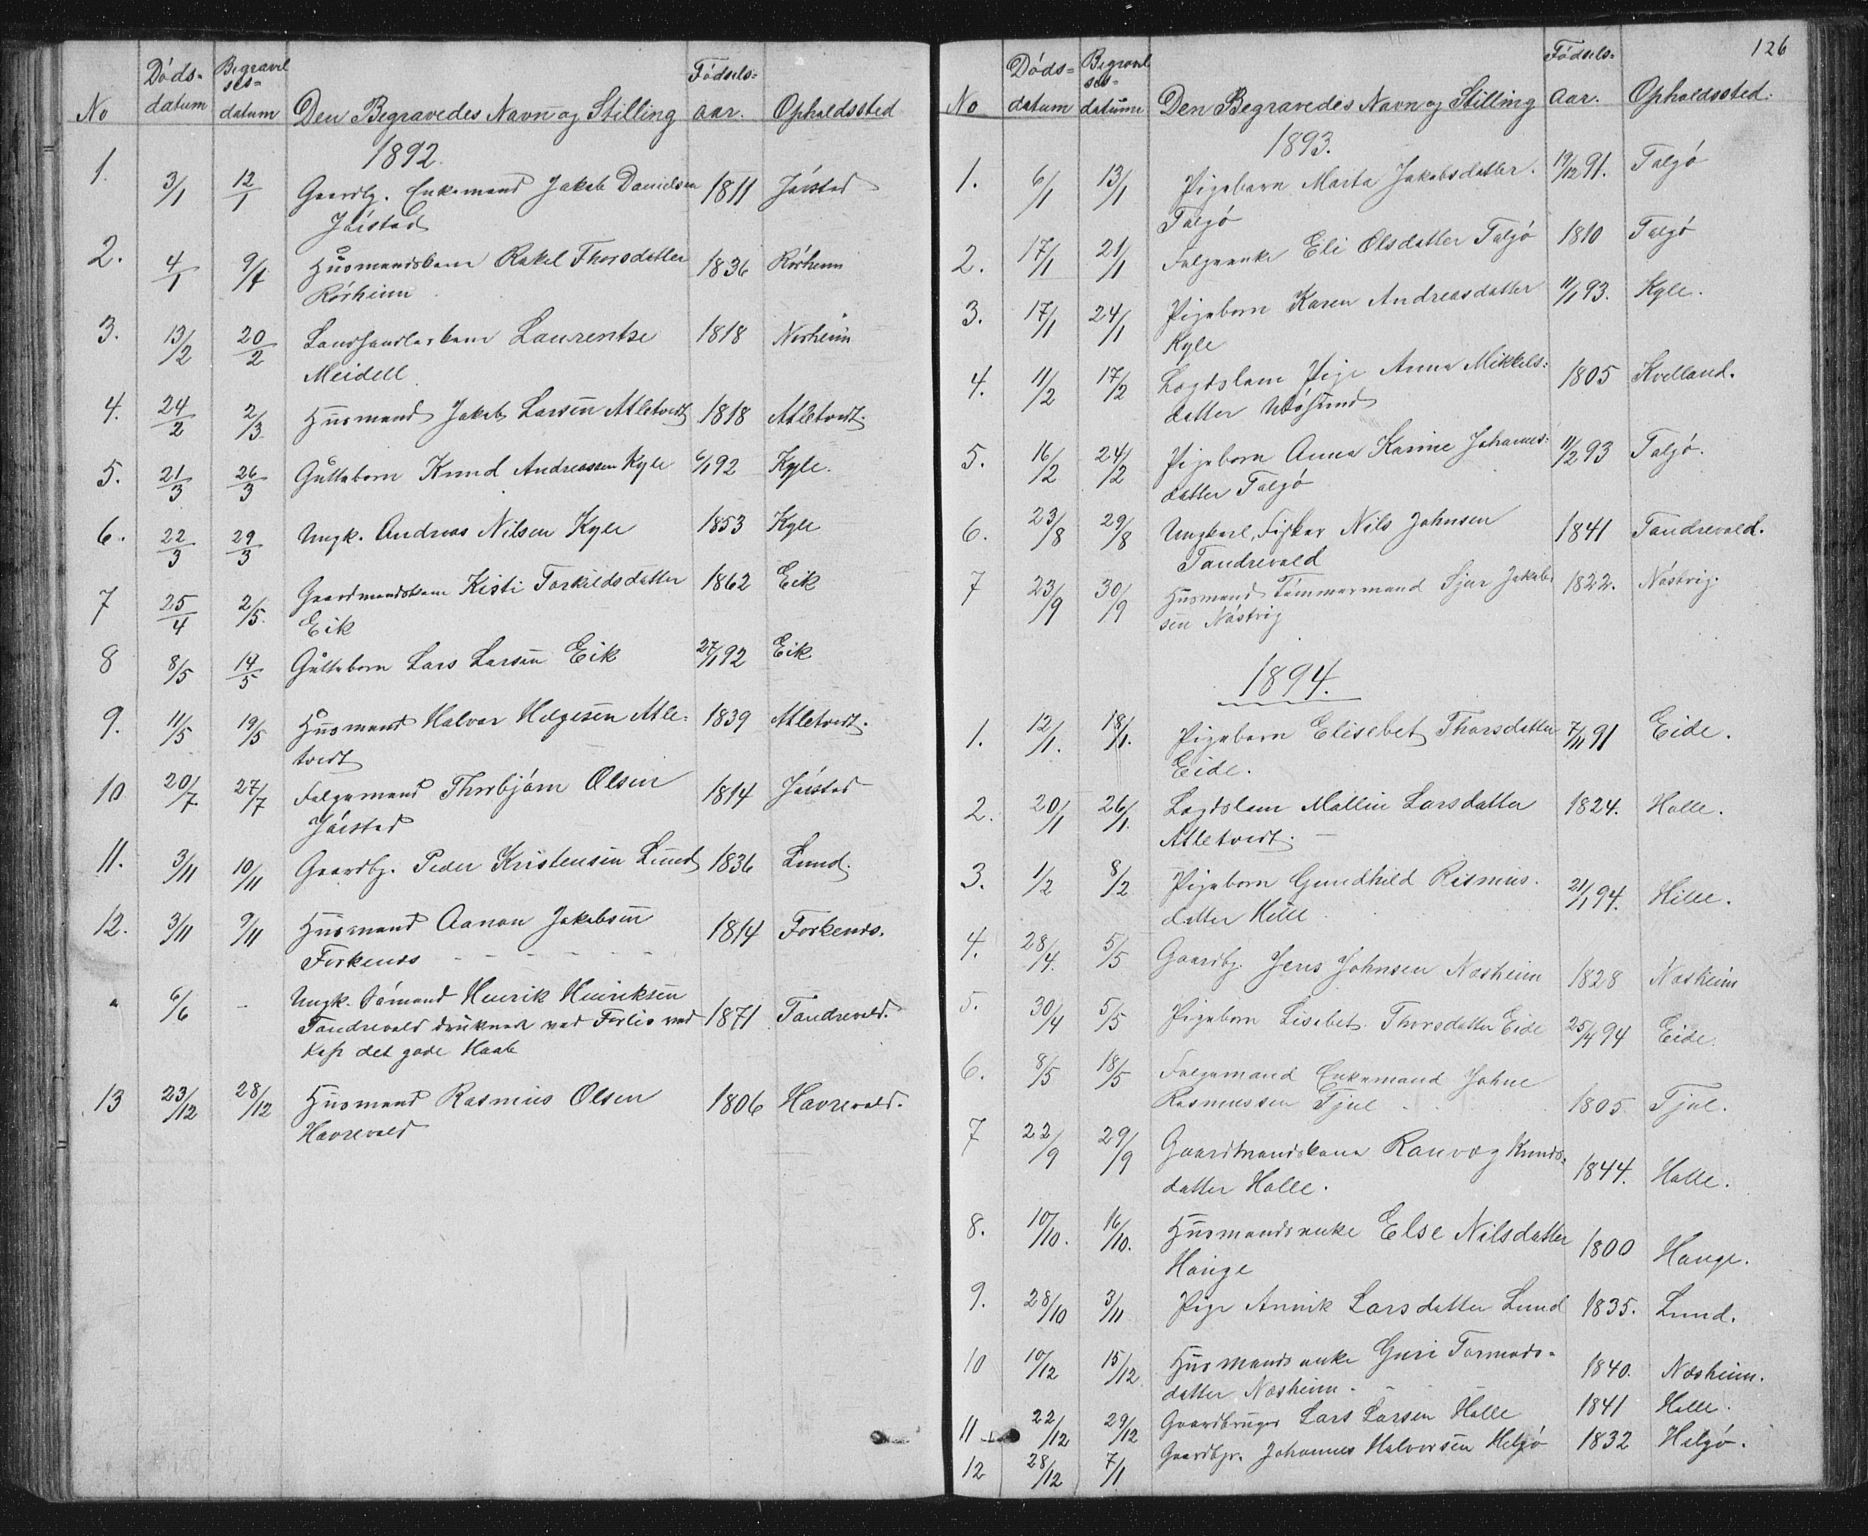 No Døds-datum Begravelses-datum Den Begravedes Navn og Stilling Fødsels-aar. Opholdssted
1892.
1. 3/1 12/1 Gaardbg. Enkemand Jakob Danielsen 1811 Jøistad
Jøistad
2. 4/1 9/1 Husmandskone Rakel Thorsdatter 1836 Rørheim
Rørheim
3. 13/2 20/2 Landhandlerkone Laurentze 1818 Norheim
Meidell
4. 24/2 2/3 Husmand Jakob Larsen Atletvedt 1818 Atletvedt.
5. 21/3 26/3 Guttebarn Knud Andreassen Kyle 6/1 92 Kyle.
6. 22/3 29/3 Ungk. Andreas Nilsen Kyle 1853 Kyle
7 25/4 2/5. Gaardmandskone Kisti Torkildsdatter 1862 Eik
Eik
8 8/5 14/5 Guttebarn Lars Larsen Eik 27/1 92 Eik
9. 11/5 19/5 Husmand Halvor Helgesen Atle- 1839 Atletvedt.
tvedt
10 20/7 27/7 Folgemand Thorbjørn Olsen 1814 Jøistad
Jøistad
11. 3/11 10/11 Gaardbg. Peder Kristensen Lund 1836 Lund.
12. 3/11 9/11 Husmand Aanon Jakobsen 1814 Forkends.
Forkends
" 6/6 - Ungk. Sømand Henrik Henriksen
Tandrevold druknede ved Forlis ved 1871 Tandrevold.
Kap det gode Haab
13 23/12 28/12 Husmand Rasmus Olsen 1806 Havrevold.
Havrevold
126
No Døds-datum Begravelses-datum Den Begravedes Navn og Stilling Fødsels-aar. Opholdssted.
1893.
1. 6/1 13/1 Pigebarn Marta Jakobsdatter. 19/12 91. Talgø
Talgø
2. 17/1 21/1 Folgeenke Eli Olsdatter Talgø 1810 Talgø
3. 17/1 24/1 Pigebarn Karen Andreasdatter 11/1 93. Kyle.
Kyle
4. 11/2 17/2 Lægdslem Pige Anna Mikkels- 1805 Kvelland.
datter
5. 16/2 24/2 Pigebarn Anna Karine Johannes- 11/2 93 Talgø.
datter Talgø
6. 23/8 29/8 Ungkarl, Fisker Nils Johnsen 1841 Tandrevold.
Tandrevold
7 23/9 30/9 Husmand Tømmermand Sjur Jakob- 1822. Nåstvig.
sen Nåstvig
1894.
1. 12/1. 18/1. Pigebarn Elisebet Thorsdatter 7/11 91 Eide.
Eide.
2. 20/1 26/1. Lægdslem Mallin Larsdatter 1824. Halle.
Atletvedt.
3. 1/2 8/2 Pigebarn Gundhild Rasmus- 21/1 94. Hille.
datter Hille
4. 28/4. 5/5 Gaardbg. Jens Johnsen Næsheim 1828 Næsheim
5. 30/4 5/5 Pigebarn Lisabet Thorsdatter Eide 25/4 94 Eide.
6. 8/5 18/5 Folgemand Enkemand Johne
Rasmussen Tjul 1805. Tjul.
7 22/9 29/9 Gaardmandskone Ranvæg Knuds-
datter Halle. 1844. Halle.
8. 10/10. 16/10. Husmandsenke Else Nilsdatter 1800 Hauge.
Hauge
9. 28/10 3/11 Pige Annik Larsdatter Lund 1835. Lund.
10 10/12 15/12 Husmandsenke Guri Tormods- 1840. Næsheim.
datter Næsheim.
11 22/12 29/12 Gaardbruger Lars Larsen Halle 1841 Halle.
12 28/12 7/1 Gaardbgr. Johannes Halvorsen Helgø 1832 Helgø.